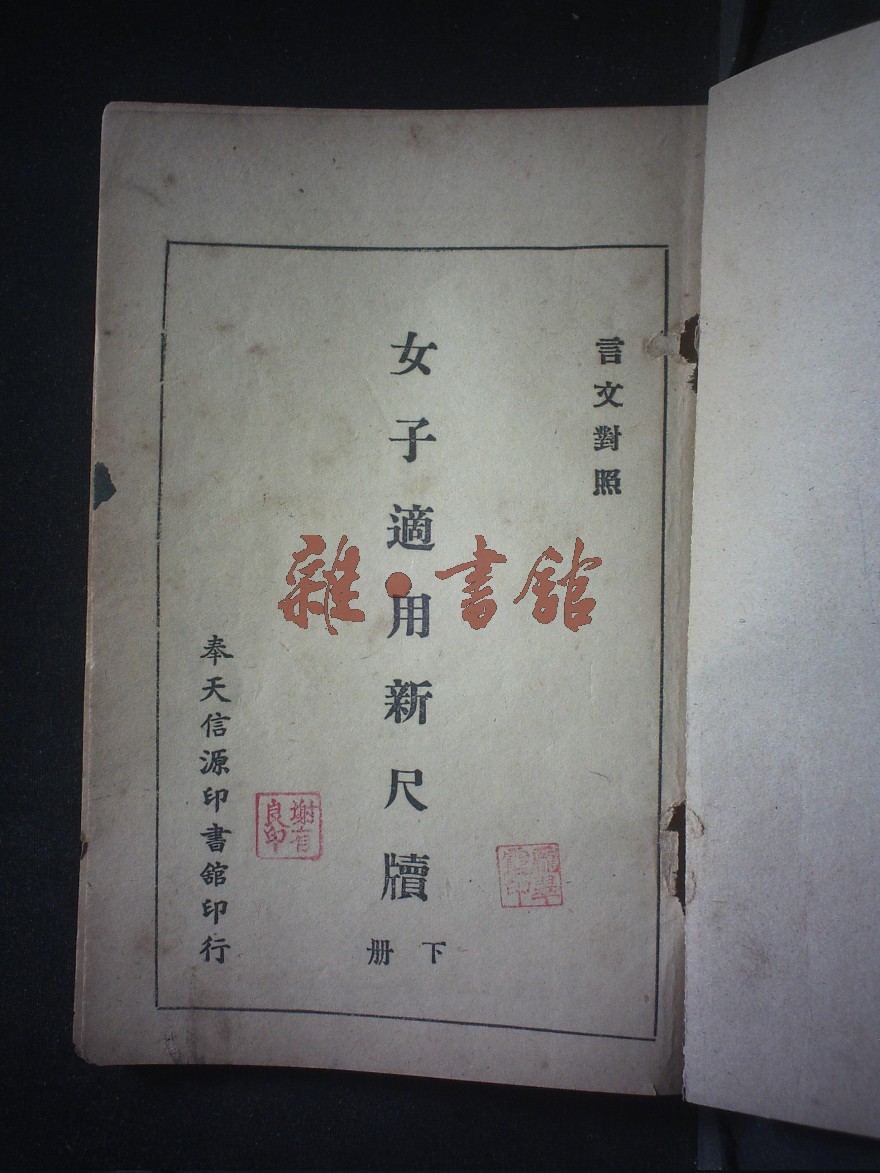 言文對照
女子適用新尺牘
下册
奉天信源印書舘印行
謝有良印
雜·書舘